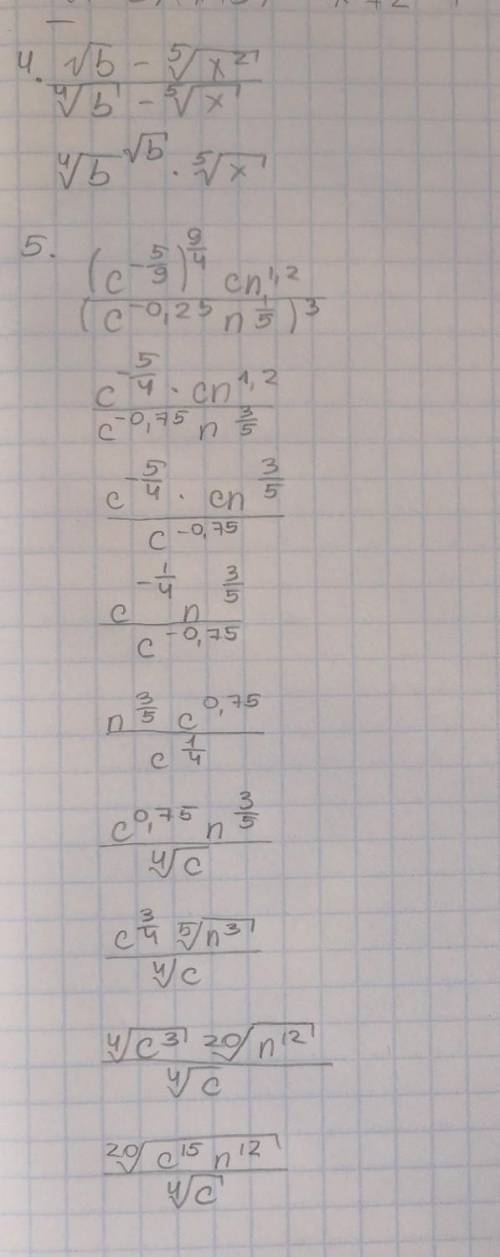 4. (√b - ⁵√(x²)) / (⁴√b - ⁵√x)
⁴√b^(√b) · ⁵√x
5. ((c^(-5/9))^(9/4) cn^(1,2)) / (c^(-0,25) n^(1/5))^3
(c^(-5/4) · cn^(1,2)) / (c^(-0,75) n^(3/5))
(c^(-5/4) · cn^(3/5)) / c^(-0,75)
(c^(-1/4) n^(3/5)) / c^(-0,75)
(n^(3/5) c^(0,75)) / c^(1/4)
(c^(0,75) n^(3/5)) / ⁴√c
(c^(3/4) ⁵√(n³)) / ⁴√c
(⁴√(c³) ²⁰√(n¹²)) / ⁴√c
²⁰√(c¹⁵ n¹²) / ⁴√c